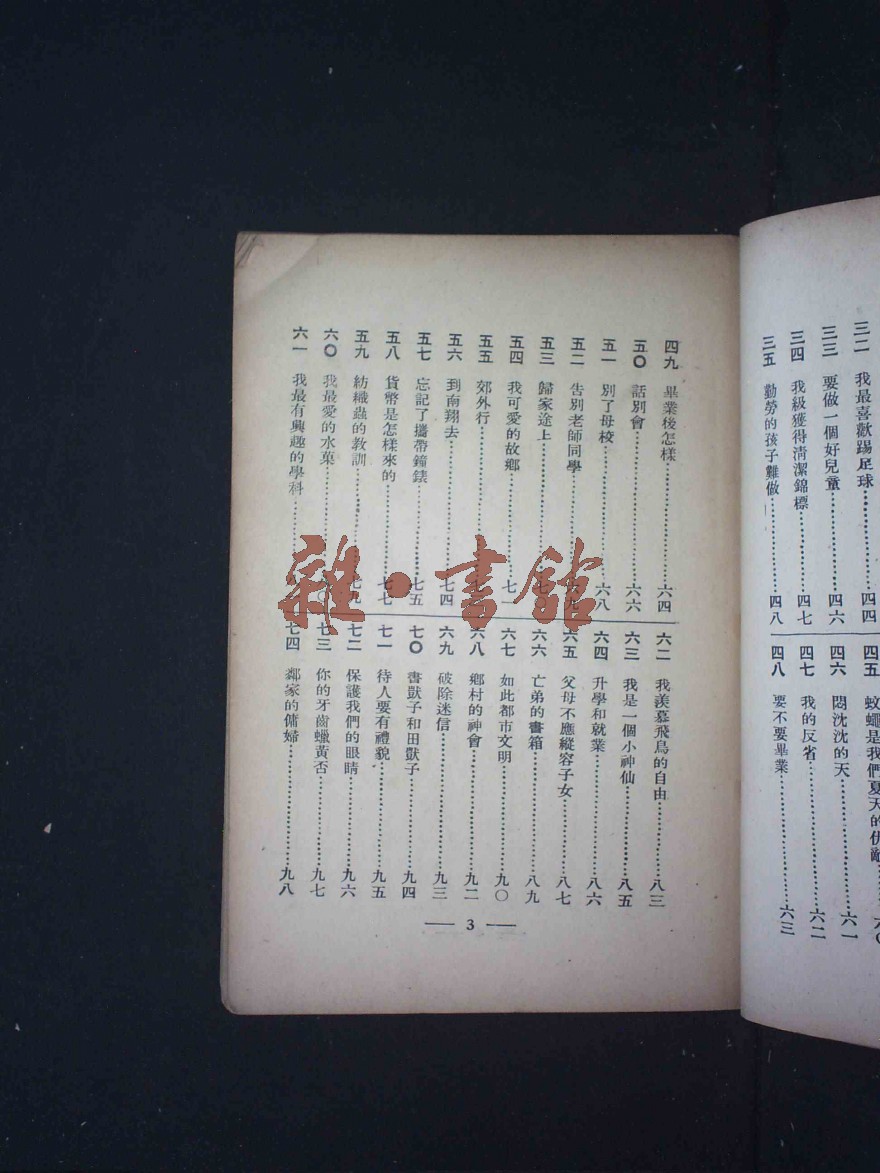 三二 我最喜歡踢足球 四四
三三 要做一個好兒童 四六
三四 我級獲得清潔錦標 四七
三五 勤勞的孩子難做 四八
四五 蚊蠅是我們夏天的仇敵 六〇
四六 悶沈沈的天 六一
四七 我的反省 六二
四八 要不要畢業 六三
四九 畢業後怎樣 六四
五〇 話別會 六六
五一 別了母校 六八
五二 告別老師同學
五三 歸家途上
五四 我可愛的故鄉
五五 郊外行
五六 到南翔去 七四
五七 忘記了攜帶鐘錶 七五
五八 貨幣是怎樣來的 七七
五九 紡織蟲的教訓 七九
六〇 我最愛的水菓
六一 我最有興趣的學科
六二 我羨慕飛鳥的自由 八三
六三 我是一個小神仙 八五
六四 升學和就業 八六
六五 父母不應縱容子女 八七
六六 亡弟的書箱 八九
六七 如此都市文明 九〇
六八 鄉村的神會 九二
六九 破除迷信 九三
七〇 書獃子和田獃子 九四
七一 待人要有禮貌 九五
七二 保護我們的眼睛 九六
七三 你的牙齒蠟黃否 九七
七四 鄰家的傭婦 九八
3
雜·書館